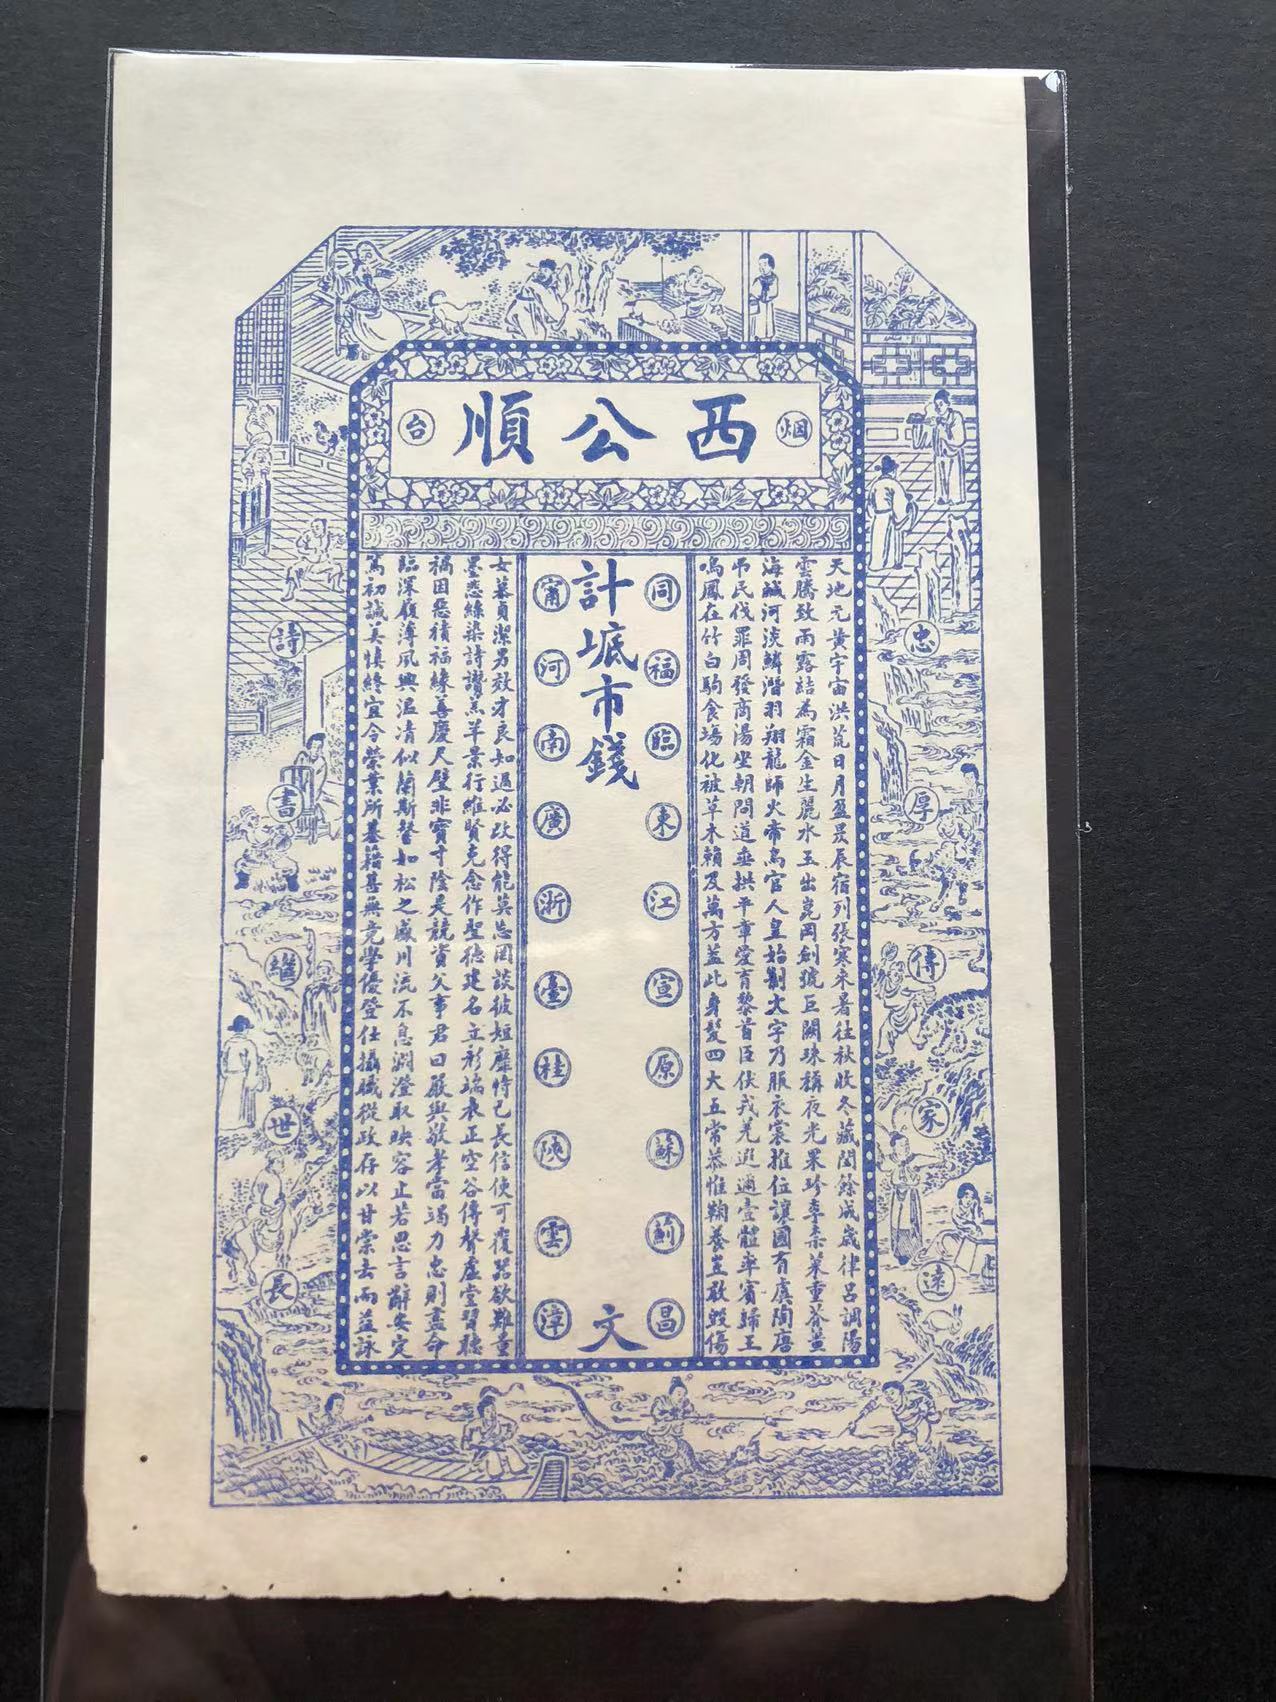 烟 西公順 台
忠厚傳家遠
天地元黃宇宙洪荒日月盈昃辰宿列張寒來暑往秋收冬藏閏餘成歲律呂調陽
雲騰致雨露結為霜金生麗水玉出崑岡劍號巨闕珠稱夜光果珍李柰菜重芥薑
海鹹河淡鱗潛羽翔龍師火帝鳥官人皇始制文字乃服衣裳推位讓國有虞陶唐
吊民伐罪周發商湯坐朝問道垂拱平章愛育黎首臣伏戎羌遐邇壹體率賓歸王
鳴鳳在竹白駒食場化被草木賴及萬方蓋此身髮四大五常恭惟鞠養豈敢毀傷
同福臨東江宣原蘇薊昌
計底市錢 文
甯河南廣浙臺桂陝雲漳
女慕貞潔男效才良知過必改得能莫忘罔談彼短靡恃己長信使可覆器欲難量
墨悲絲染詩讚羔羊景行維賢克念作聖德建名立形端表正空谷傳聲虛堂習聽
禍因惡積福緣善慶尺璧非寶寸陰是競資父事君曰嚴與敬孝當竭力忠則盡命
臨深履薄夙興溫清似蘭斯馨如松之盛川流不息淵澄取映容止若思言辭安定
篤初誠美慎終宜令榮業所基籍甚無竟學優登仕攝職從政存以甘棠去而益詠
詩書繼世長